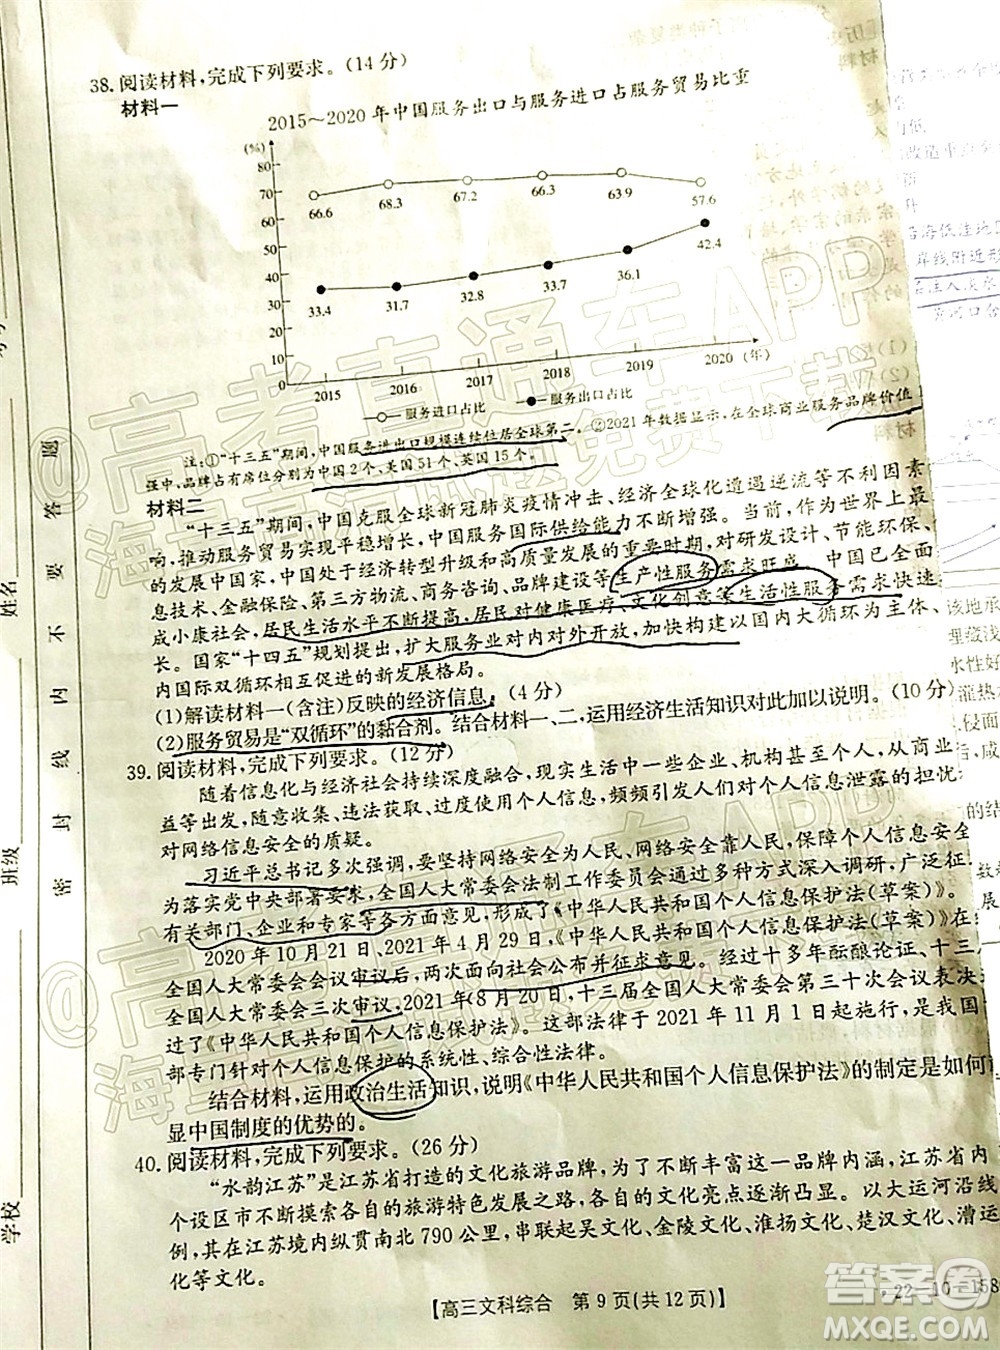 38. 阅读材料,完成下列要求。(14分)
材料一
2015～2020年中国服务出口与服务进口占服务贸易比重
(%)
80
70
60
50
40
30
20
10
0
66.6 68.3 67.2 66.3 63.9 57.6
33.4 31.7 32.8 33.7 36.1 42.4
2015 2016 2017 2018 2019 2020 (年)
服务进口占比 服务出口占比
注:①“十三五”期间,中国服务进出口规模连续位居全球第二。②2021年数据显示,在全球商业服务品牌价值
强中,品牌占有席位分别为中国2个、美国51个、英国15个。
材料二
“十三五”期间,中国克服全球新冠肺炎疫情冲击、经济全球化遭遇逆流等不利因素
响,推动服务贸易实现平稳增长,中国服务国际供给能力不断增强。当前,作为世界最大
的发展中国家,中国处于经济转型升级和高质量发展的重要时期,对研发设计、节能环保、
息技术、金融保险、第三方物流、商务咨询、品牌建设等生产性服务需求旺盛。中国已全面
成小康社会,居民生活水平不断提高,居民对健康医疗、文化创意等生活性服务需求快速
长。国家“十四五”规划提出,扩大服务业对内对外开放,加快构建以国内大循环为主体、
内国际双循环相互促进的新发展格局。
(1)解读材料一(含注)反映的经济信息。(4分)
(2)服务贸易是“双循环”的黏合剂。结合材料一、二,运用经济生活知识对此加以说明。(10分)
39. 阅读材料,完成下列要求。(12分)
随着信息化与经济社会持续深度融合,现实生活中一些企业、机构甚至个人,从商业
益等出发,随意收集、违法获取、过度使用个人信息,频频引发人们对个人信息泄露的担忧
对网络信息安全的质疑。
习近平总书记多次强调,要坚持网络安全为人民、网络安全靠人民,保障个人信息安全
为落实党中央部署要求,全国人大常委会法制工作委员会通过多种方式深入调研,广泛征
有关部门、企业和专家等各方面意见,形成了《中华人民共和国个人信息保护法(草案)》。
2020年10月21日、2021年4月29日,《中华人民共和国个人信息保护法(草案)》在
全国人大常委会会议审议后,两次面向社会公布并征求意见。经过十多年酝酿论证、十三
全国人大常委会三次审议,2021年8月20日,十三届全国人大常委会第三十次会议表决
过了《中华人民共和国个人信息保护法》。这部法律于2021年11月1日起施行,是我国
部专门针对个人信息保护的系统性、综合性法律。
结合材料,运用政治生活知识,说明《中华人民共和国个人信息保护法》的制定是如何
显中国制度的优势的。
40. 阅读材料,完成下列要求。(26分)
“水韵江苏”是江苏省打造的文化旅游品牌,为了不断丰富这一品牌内涵,江苏省内
个设区市不断摸索各自的旅游特色发展之路,各地的文化亮点逐渐凸显。以大运河沿线
例,其在江苏境内纵贯南北790公里,串联起吴文化、金陵文化、淮扬文化、楚汉文化、漕运
化等文化。
【高三文科综合 第9页(共12页)】
·22-10-158
学校
班级
姓名
密封线内不要答题
@高考直通车APP
答案圈
MXQE.COM